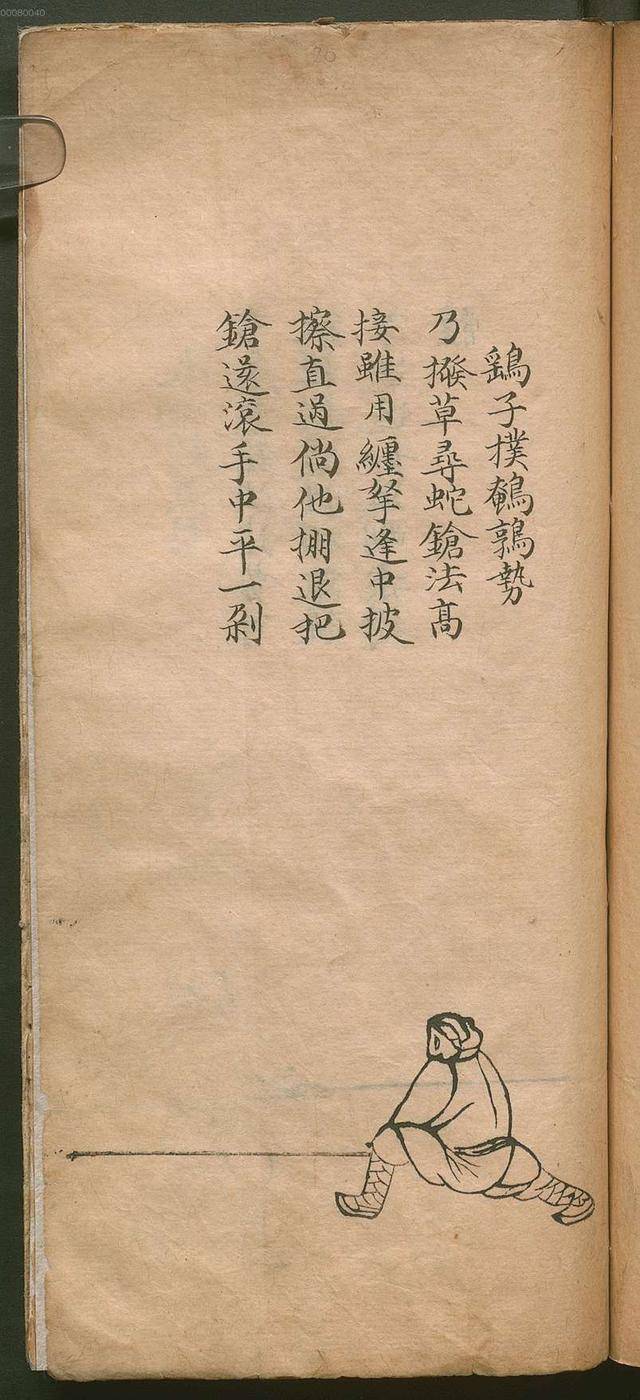 鷂子撲鵪鶉勢
乃撥草尋蛇鎗法高
接雖用纏拏逢中披
擦直過倘他掤退把
鎗還滾手中平一剁
00080040